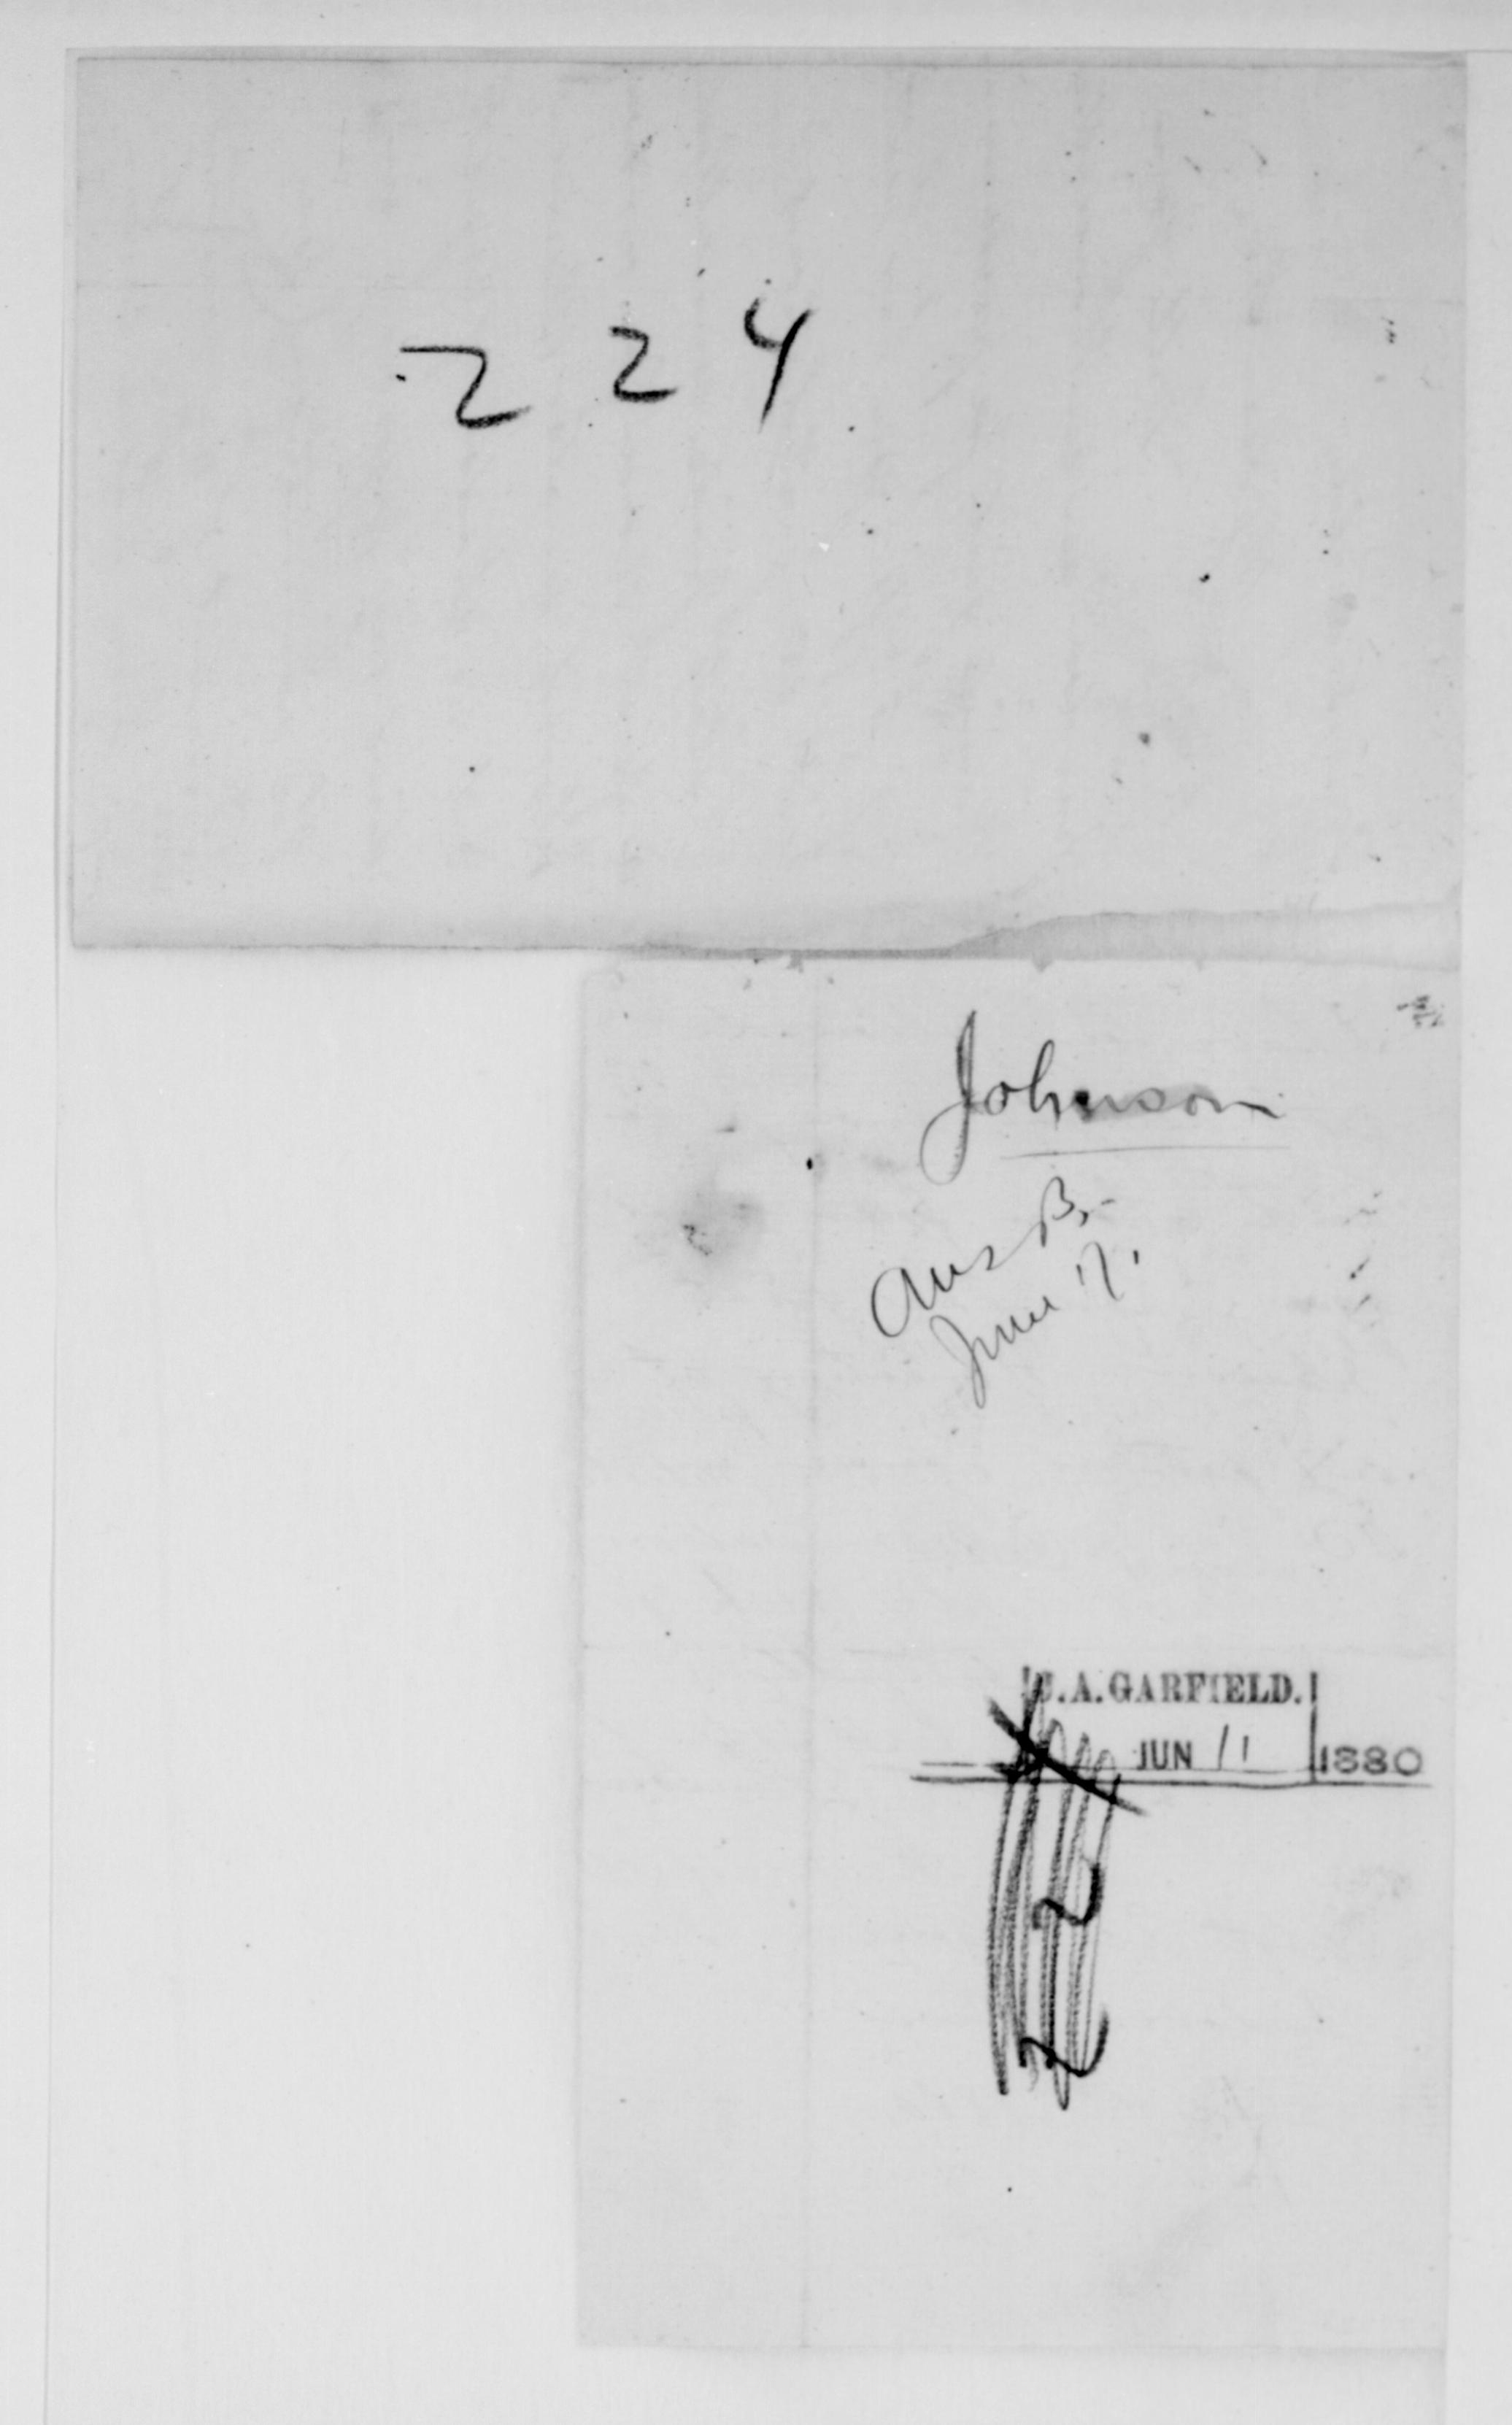 224
Johnson
Ans B.
June 17.
J.A. GARFIELD.
JUN 11 1880
22